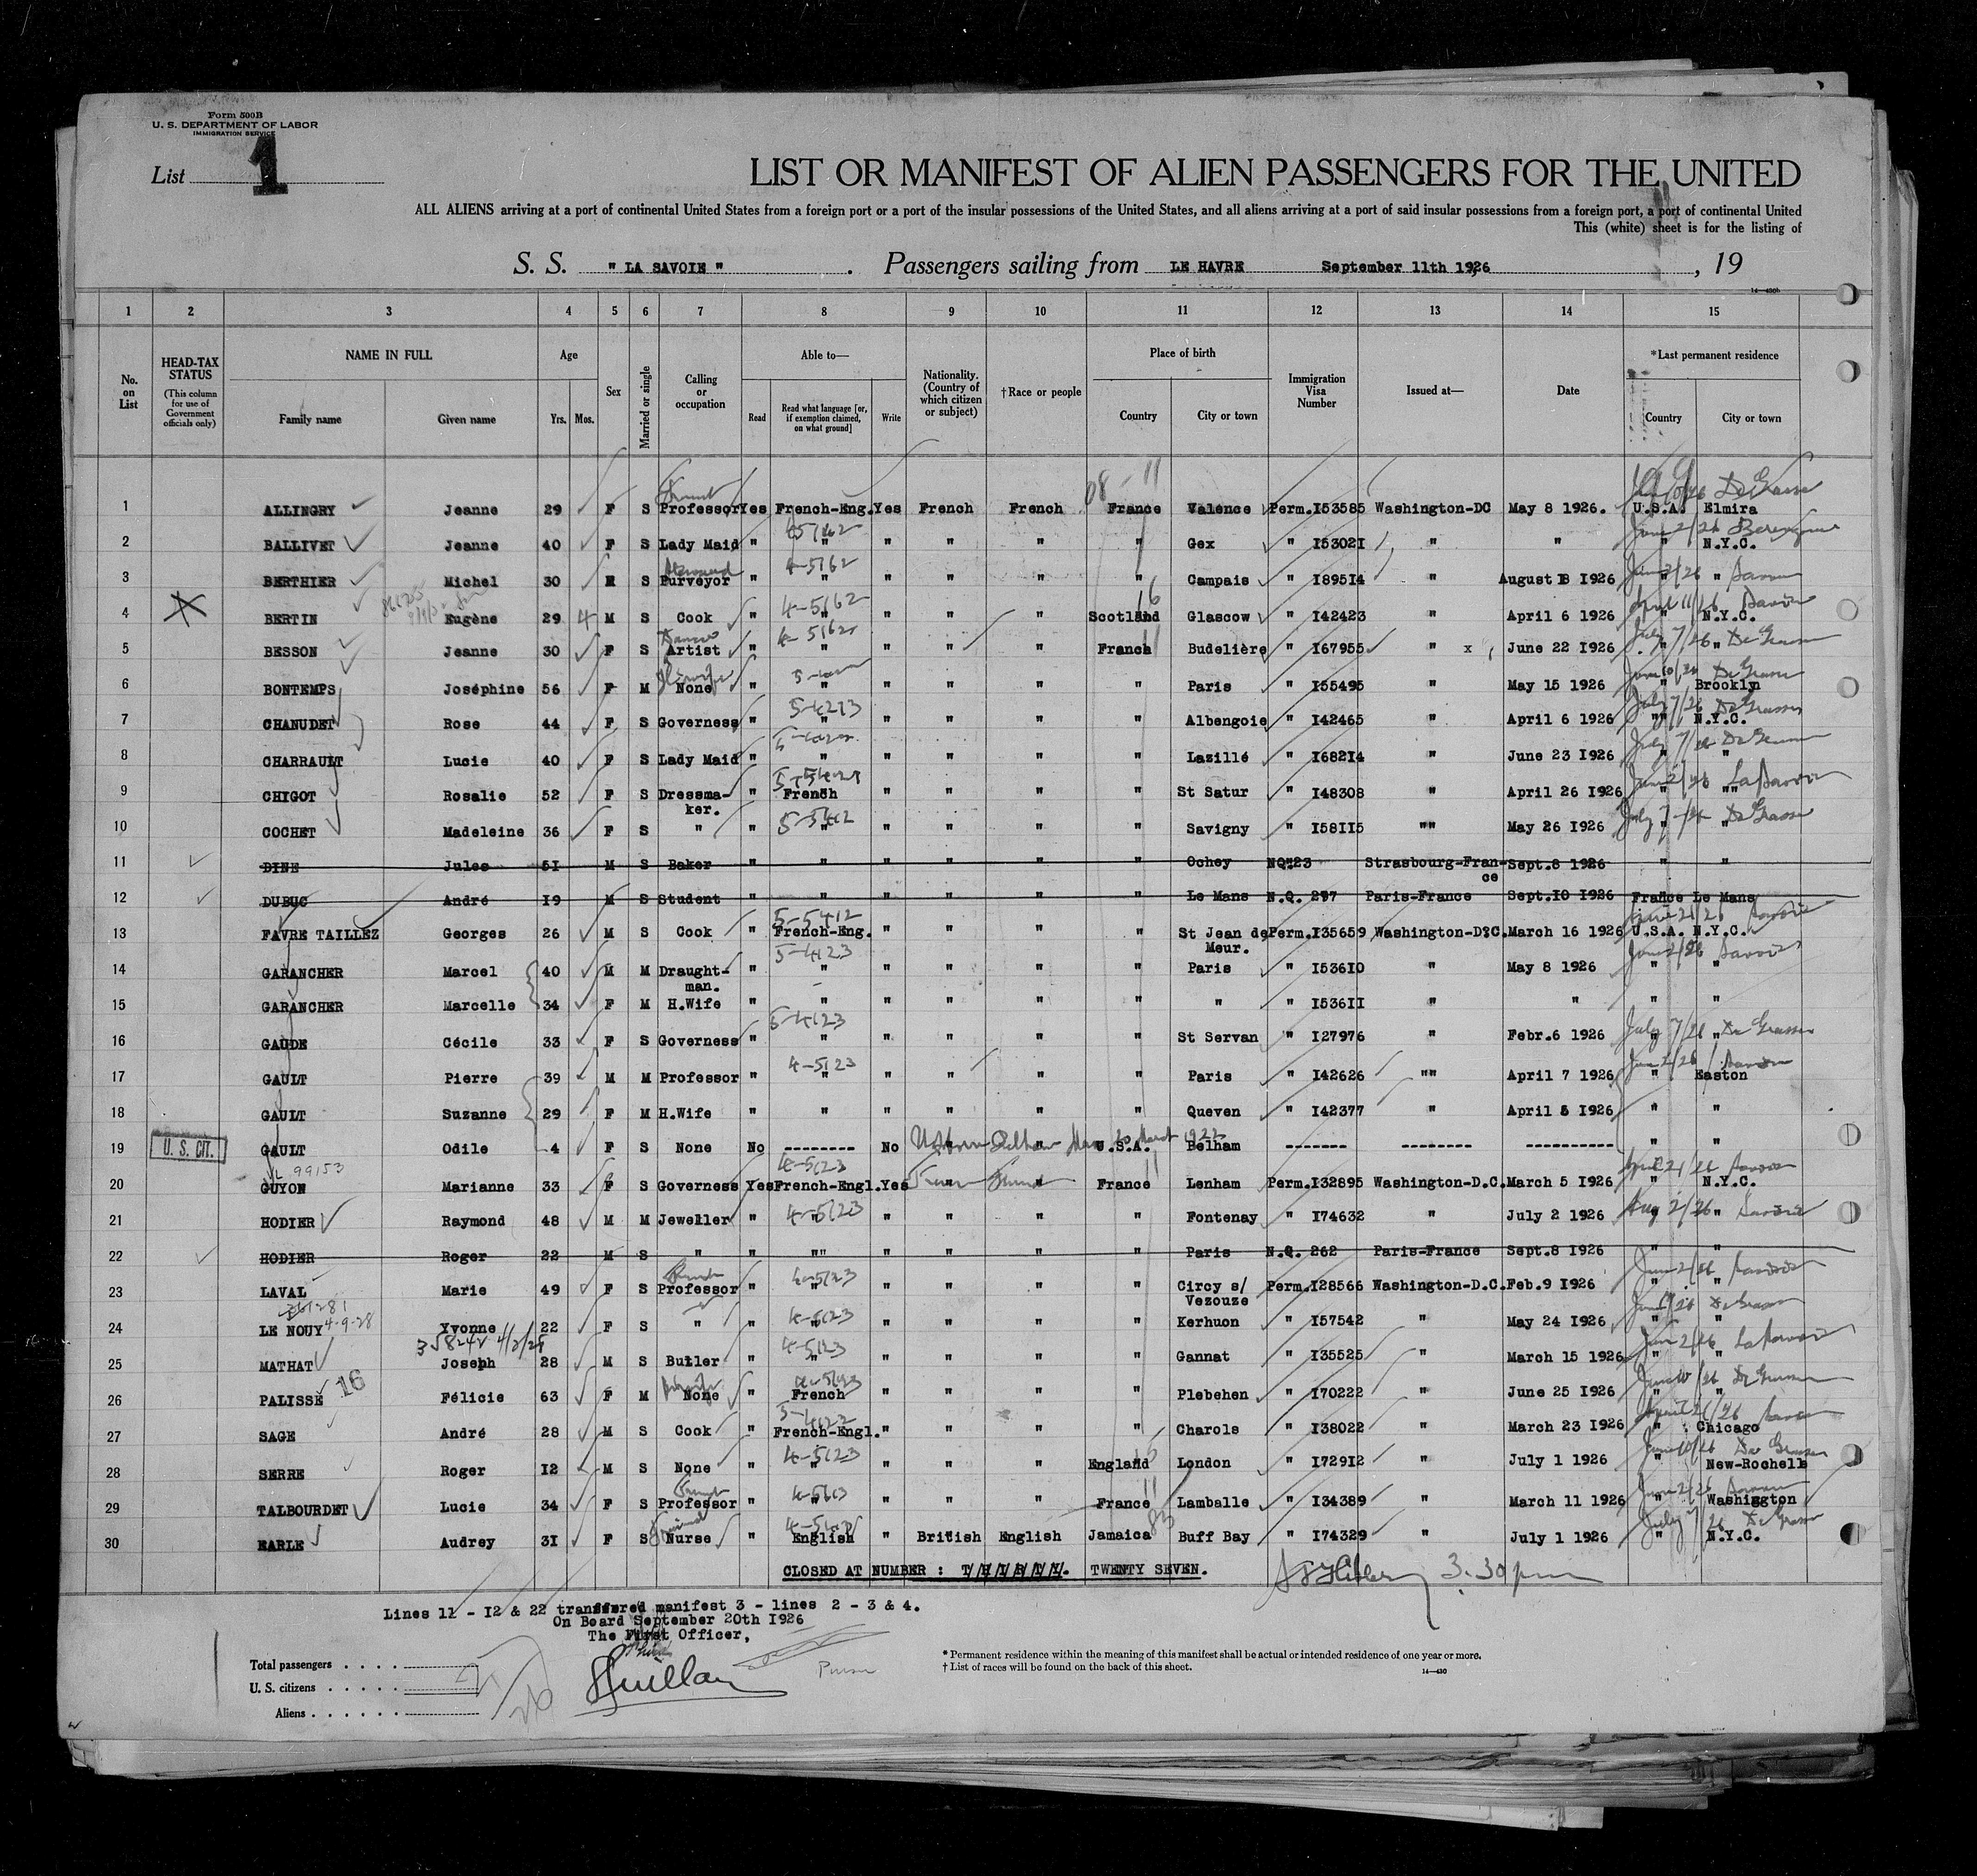 Form 500B
U. S. DEPARTMENT OF LABOR
IMMIGRATION SERVICE
List 1
LIST OR MANIFEST OF ALIEN PASSENGERS FOR THE UNITED
ALL ALIENS arriving at a port of continental United States from a foreign port or a port of the insular possessions of the United States, and all aliens arriving at a port of said insular possessions from a foreign port, a port of continental United
This (white) sheet is for the listing of
S. S. " LA SAVOIE " . Passengers sailing from LE HAVRE September 11th 1926 , 19
14—430b
1 2 3 4 5 6 7 8 9 10 11 12 13 14 15
No. on List
HEAD-TAX STATUS (This column for use of Government officials only)
NAME IN FULL Family name Given name
Age Yrs. Mos.
Sex
Married or single
Calling or occupation
Able to— Read Read what language [or, if exemption claimed, on what ground] Write
Nationality. (Country of which citizen or subject)
†Race or people
Place of birth Country City or town
Immigration Visa Number
Issued at—
Date
*Last permanent residence Country City or town
1 ALLINGRY Jeanne 29 F S Professor Yes French-Eng. Yes French French France Valence Perm. I53585 Washington-DC May 8 1926. U.S.A. Elmira
2 BALLIVET Jeanne 40 F S Lady Maid " " " " " " Gex " I53021 " " " N.Y.C.
3 BERTHIER Michel 30 M S Purveyor " " " " " " Campais " I89514 " August 18 1926 " "
4 BERTIN Eugène 29 4 M S Cook " " " " " Scotland Glascow " I42423 " April 6 1926 " N.Y.C.
5 BESSON Jeanne 30 F S Artist " " " " " Franch Budelière " I67955 " x June 22 1926 " "
6 BONTEMPS Joséphine 56 F M None " " " " " " Paris " I55495 " May 15 1926 " Brooklyn
7 CHANUDET Rose 44 F S Governess " " " " " " Albengoie " I42465 " April 6 1926 "" N.Y.C.
8 CHARRAULT Lucie 40 F S Lady Maid " " " " " " Lazillé " I68214 " June 23 1926 " "
9 CHIGOT Rosalie 52 F S Dressma-ker. " French " " " " St Satur " I48308 " April 26 1926 " ""
10 COCHET Madeleine 36 F S " " " " " " " Savigny " I58115 "" May 26 1926 " "
11 DINE Jules 51 M S Baker " " " " " " Ochey NQ 23 Strasbourg-France Sept.8 1926 " "
12 DUBUC André 19 M S Student " " " " " " Le Mans N.Q. 297 Paris-France Sept.10 1926 France Le Mans
13 FAVRE TAILLEZ Georges 26 M S Cook " French-Eng. " " " " St Jean de Meur. Perm. I35659 Washington-D.C. March 16 1926 U.S.A. N.Y.C.
14 GARANCHER Marcel 40 M M Draught-man. " " " " " " Paris " I53610 " May 8 1926 " "
15 GARANCHER Marcelle 34 F M H.Wife " " " " " " " " I53611 " " " "
16 GAUDE Cécile 33 F S Governess " " " " " " St Servan " I27976 " Febr.6 1926 " "
17 GAULT Pierre 39 M M Professor " " " " " " Paris " I42626 "" April 7 1926 " Easton
18 GAULT Suzanne 29 F M H.Wife " " " " " " Queven " I42377 " April 5 1926 " "
19 U. S. CIT. GAULT Odile 4 F S None No -------- No " " U.S.A. Belham ------- -------- ---------- " "
20 GUYON 99153 Marianne 33 F S Governess Yes French-Engl. Yes " " France Lenham Perm. I32895 Washington-D.C. March 5 1926 " N.Y.C.
21 HODIER Raymond 48 M M Jeweller " " " " " " Fontenay " I74632 " July 2 1926 " "
22 HODIER Roger 22 M S " " "" " " " " Paris N.Q. 262 Paris-France Sept.8 1926 " "
23 LAVAL Marie 49 F S Professor " " " " " " Circy s/ Vezouze Perm. I28566 Washington-D.C. Feb.9 1926 " "
24 LE NOUY 4-9-28 Yvonne 22 F S " " " " " " " Kerhuon " I57542 " May 24 1926 " "
25 MATHAT Joseph 28 M S Butler " " " " " " Gannat " I35525 " March 15 1926 " "
26 PALISSE 16 Félicie 63 F M None " French " " " " Plebehen " I70222 " June 25 1926 " "
27 SAGE André 28 M S Cook " French-Engl. " " " " Charols " I38022 " March 23 1926 " Chicago
28 SERRE Roger 12 M S None " " " " " England London " I72912 " July 1 1926 " New-Rochelle
29 TALBOURDET Lucie 34 F S Professor " " " " " France Lamballe " I34389 " March 11 1926 " Washington
30 EARLE Audrey 31 F S Nurse " English " British English Jamaica Buff Bay " I74329 " July 1 1926 " N.Y.C.
CLOSED AT NUMBER : THIRTY. TWENTY SEVEN. 3.30 pm
Lines 11 - 12 & 22 transfered manifest 3 - lines 2 - 3 & 4.
On Board September 20th 1926
The First Officer,
Total passengers
U. S. citizens
Aliens
* Permanent residence within the meaning of this manifest shall be actual or intended residence of one year or more.
† List of races will be found on the back of this sheet.
14—430